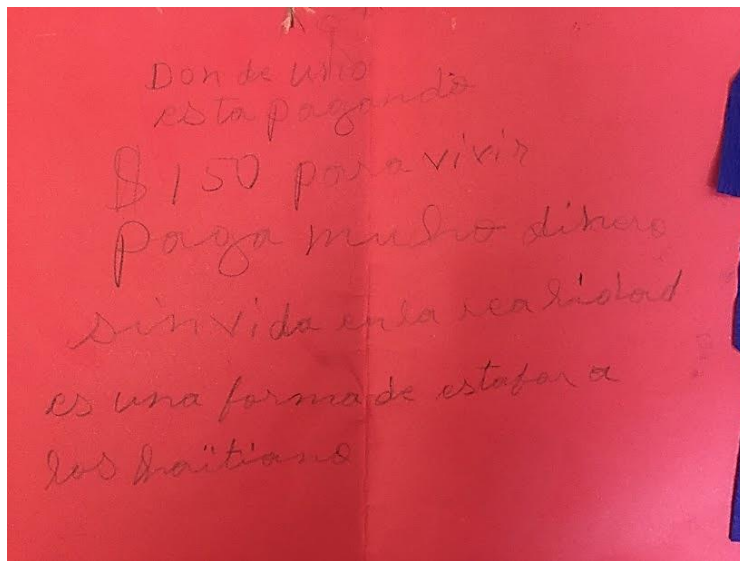 Donde uno
esta pagando
$150 para vivir
paga mucho dinero
sin vida en la realidad
es una forma de estafar a
los haïtiano